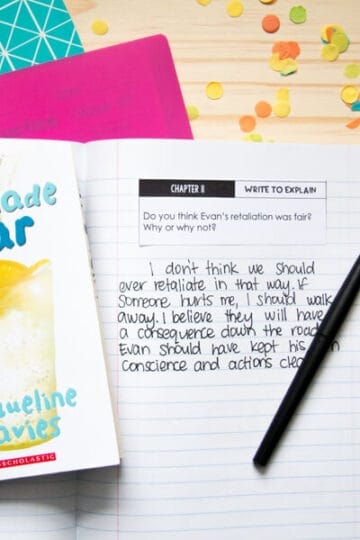 ade
ar
queline
avies
SCHOLASTIC
CHAPTER 11
WRITE TO EXPLAIN
Do you think Evan's retaliation was fair?
Why or why not?
I don't think we should
ever retaliate in that way. If
Someone hurts me, I should walk
away. I believe they will have
a consequence down the road
Evan should have kept his
Conscience and actions